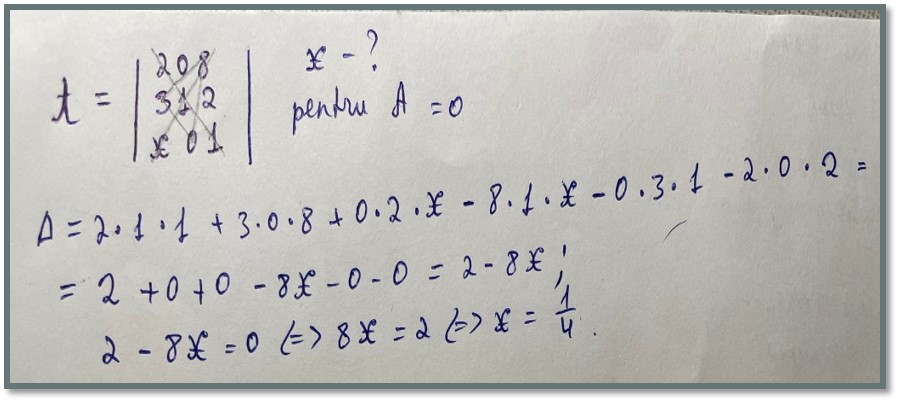 A = | 2 0 8 | x - ?
| 3 1 2 | pentru A = 0
| x 0 1 |
Δ = 2·1·1 + 3·0·8 + 0·2·x - 8·1·x - 0·3·1 - 2·0·2 =
= 2 + 0 + 0 - 8x - 0 - 0 = 2 - 8x ;
2 - 8x = 0 (=> 8x = 2 (=> x = 1/4 .